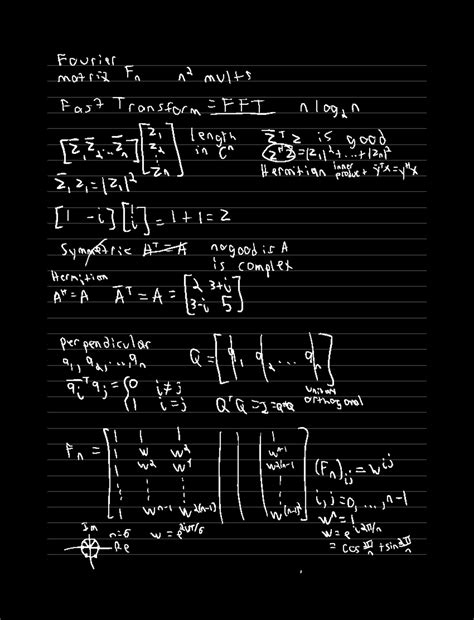 Fourier
matrix Fₙ n² mults
Fast Transform = FFT n log₂n
[z̄₁ z̄₂ ... z̄ₙ] [z₁ z₂ : zₙ] length in ℂⁿ z̄ᵀz is good
zᴴz = |z₁|² + ... + |zₙ|²
Hermitian inner product ȳᵀx = yᴴx
z̄₁z₁ = |z₁|²
[1 -i] [1 i] = 1+1 = 2
Symmetric Aᵀ = A no good if A is complex
Hermitian
Aᴴ = A Āᵀ = A = [2 3+i 3-i 5]
perpendicular
q₁, q₂, ..., qₙ Q = [q₁ q₂ ... qₙ]
q̄ᵢᵀqⱼ = {0 i≠j
1 i=j
unitary orthogonal
Fₙ = [1 1 1 1
1 w w² wⁿ⁻¹
1 w² w⁴ w²⁽ⁿ⁻¹⁾
: : : :
1 wⁿ⁻¹ w²⁽ⁿ⁻¹⁾ ]
(Fₙ)ᵢⱼ = wⁱʲ
i, j = 0, ..., n-1
wⁿ = 1
w = e^(i2π/n)
= cos 2π/n + i sin 2π/n
Im
Re
n=6 w = e^(2iπ/6)